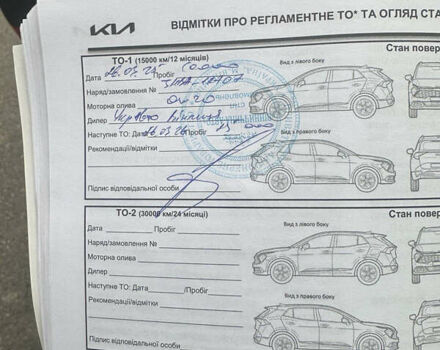 KIA
ВІДМІТКИ ПРО РЕГЛАМЕНТНЕ ТО* ТА ОГЛЯД СТА
ТО-1 (15000 км/12 місяців)
Стан повер
Дата 26.03.25 Пробіг 10000
Вид з лівого боку
Наряд/замовлення №
Моторна олива 0W20
Дилер УкрАвто
Наступне ТО: Дата 26.03.26 Пробіг 25 000
Вид з правого боку
Рекомендації/відмітки
Підпис відповідальної особи
ТО-2 (30000 км/24 місяці)
Стан повер
Дата Пробіг
Вид з лівого боку
Наряд/замовлення №
Моторна олива
Дилер
Наступне ТО: Дата /Пробіг
Вид з правого боку
Рекомендації/відмітки
Підпис відповідальної особи